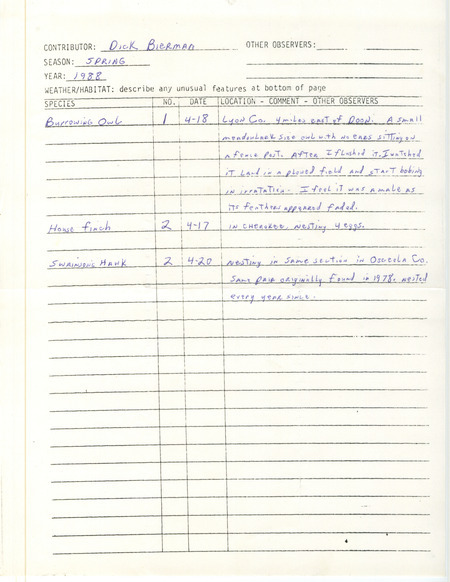 CONTRIBUTOR: Dick Bierman OTHER OBSERVERS:
SEASON: SPRING
YEAR: 1988
WEATHER/HABITAT: describe any unusual features at bottom of page
SPECIES NO. DATE LOCATION - COMMENT - OTHER OBSERVERS
Burrowing Owl 1 4-18 Lyon Co. 4 miles east of Doon. A small
meadowlark size owl with no ears sitting on
a fence post. After I flushed it I watched
it land in a plowed field and start bobing
in irratation. I feel it was a male as
its feathers appeared faded.
House finch 2 4-17 in Cherokee, nesting 4 eggs.
Swainsons Hawk 2 4-20 nesting in same section in Osceola Co.
Same pair originally found in 1978. nested
every year since.